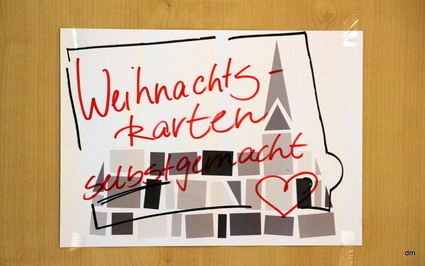 Weihnachts-
karten
selbstgemacht
dm